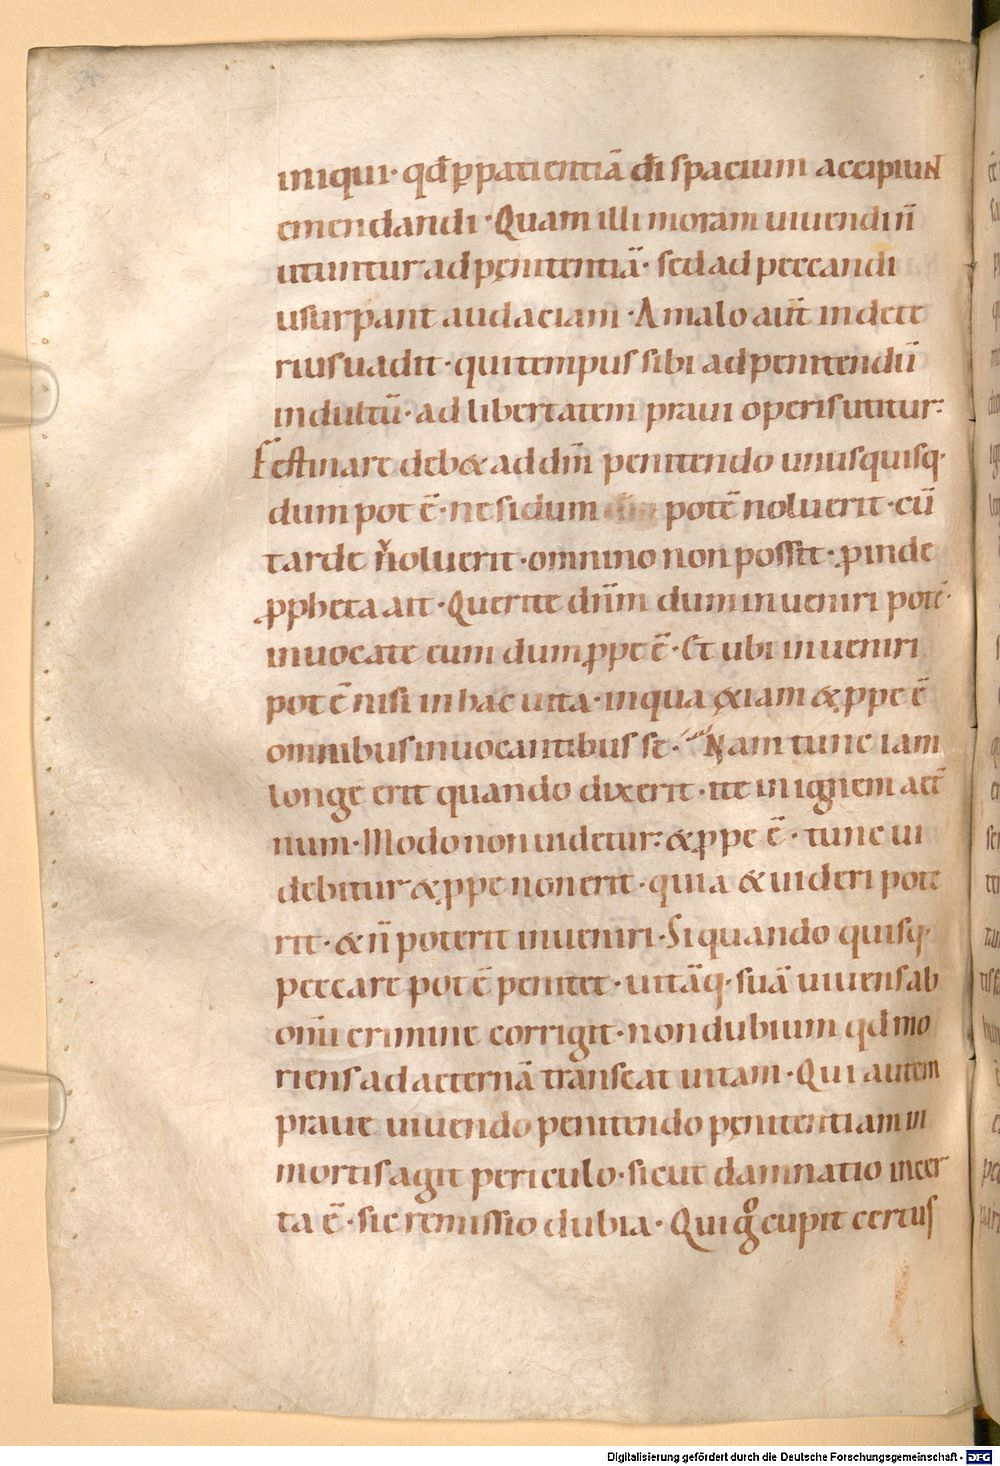 iniqui · qđ ꝑ patientiā đi spacium accipiuɴᴛ
emendandi · Quam illi moram uiuendi n̄
utuntur ad pęnitentiā · sed ad peccandi
usurpant audaciam · A malo aut̄ in dete
rius uadit · qui tempus sibi ad penitendū
indultū · ad libertatem praui operis utitur:
Festinare deb& ad dm̄ penitendo unusquisq·
dum pot ē · ne si dum potē noluerit · cū
tarde noluerit · omnino non possit · ꝓinde
ꝓpheta ait · Querite dn̄m dum inueniri potē·
inuocate eum dum ꝓpe ē · Et ubi inueniri
pot ē nisi in hac uita · in qua &iam & ꝓpe ē
omnibus inuocantibus se · Nam tunc iam
longe erit quando dixerit · ite in ignem aet̄
num · Modo non uidetur: & ꝓpe ē · tunc ui
debitur & ꝓpe non erit · quia & uideri pote
rit · & n̄ poterit inueniri · Si quando quisq·
peccare pot ē penitet · uitāq· suā uiuens ab
om̄i crimine corrigit · non dubium qđ mo
riens ad aeternā transeat uitam · Qui autem
praue uiuendo penitendo pęnitentiam in
mortis agit periculo · sicut damnatio incer
ta ē · sic remissio dubia · Qui gͦ cupit certus
Digitalisierung gefördert durch die Deutsche Forschungsgemeinschaft - DFG